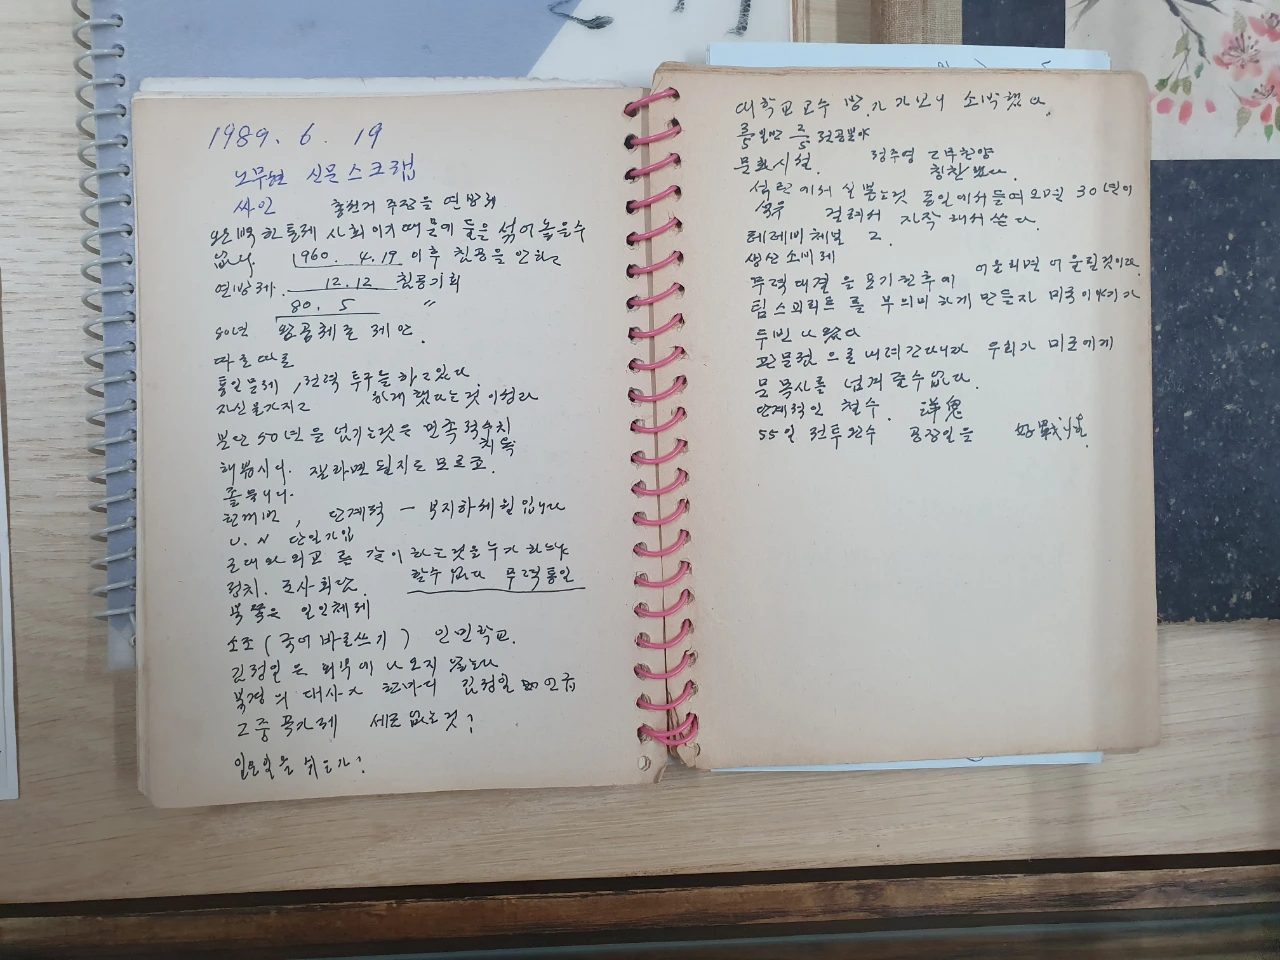 1989. 6. 19
노무현 신문스크랩
싸인 총선거 주장을 연방제
완벽한 통제 사회이기 때문에 둘을 섞어 놓을수
없다. 1960. 4.19 이후 침공을 안하고
연방제. 12.12 침공기회
80. 5 〃
80년 제안.
따로따로
통일문제, 전력투구를 하고 있다.
자신을 가지고 하게 했다는것
분단 50년을 넘기는것은 민족적 수치
치욕
해봅시다. 잘라면 될지도 모르고.
졸속이다.
한꺼번, 단계적 - 부지하세월입니다
U. N 단일가입
군대와 외교권 같이 하는것을 누가 하느냐
정치. 조사회담. 할수 없다 무력통일
북쪽은 일인체제
소조 (국어 바로쓰기) 인민학교.
김정일은 외부에 나오지 않는다
북경의 대사가 한마디 김정일
2중 곡가제 세금 없는것?
일요일을 쉬는가?
대학교 교수 방 가 가보니 소박했다.
전공분야
문화시설. 정주영 고무찬양
칭찬 했다.
석탄에서 실 뽑는것 통일에서 들여오면 30년이
석유 걸려서 자작해서 쓴다.
테레비 채널 2.
생산 소비제
무력대결을 포기한후에 어울리면 어울릴것이다.
팀스피리트를 무의미하게 만들자 미국이야기가
두번 나왔다
판문점으로 내려간다니까 우리가 미군에게
문목사를 넘겨 줄수 없다.
단계적인 철수. 洋鬼
55일 전투완수 공장일을 好戰